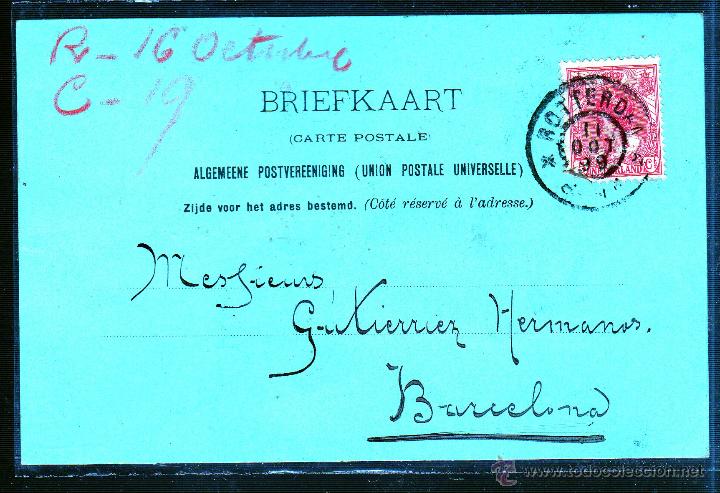 R - 16 Octubre
C - 19
BRIEFKAART
(CARTE POSTALE)
ALGEMEENE POSTVEREENIGING (UNION POSTALE UNIVERSELLE)
Zijde voor het adres bestemd. (Côté réservé à l'adresse.)
ROTTERDAM
11
OCT
99
Messieurs
Gutierriez Hermanos.
Barcelona
todocoleccion.net